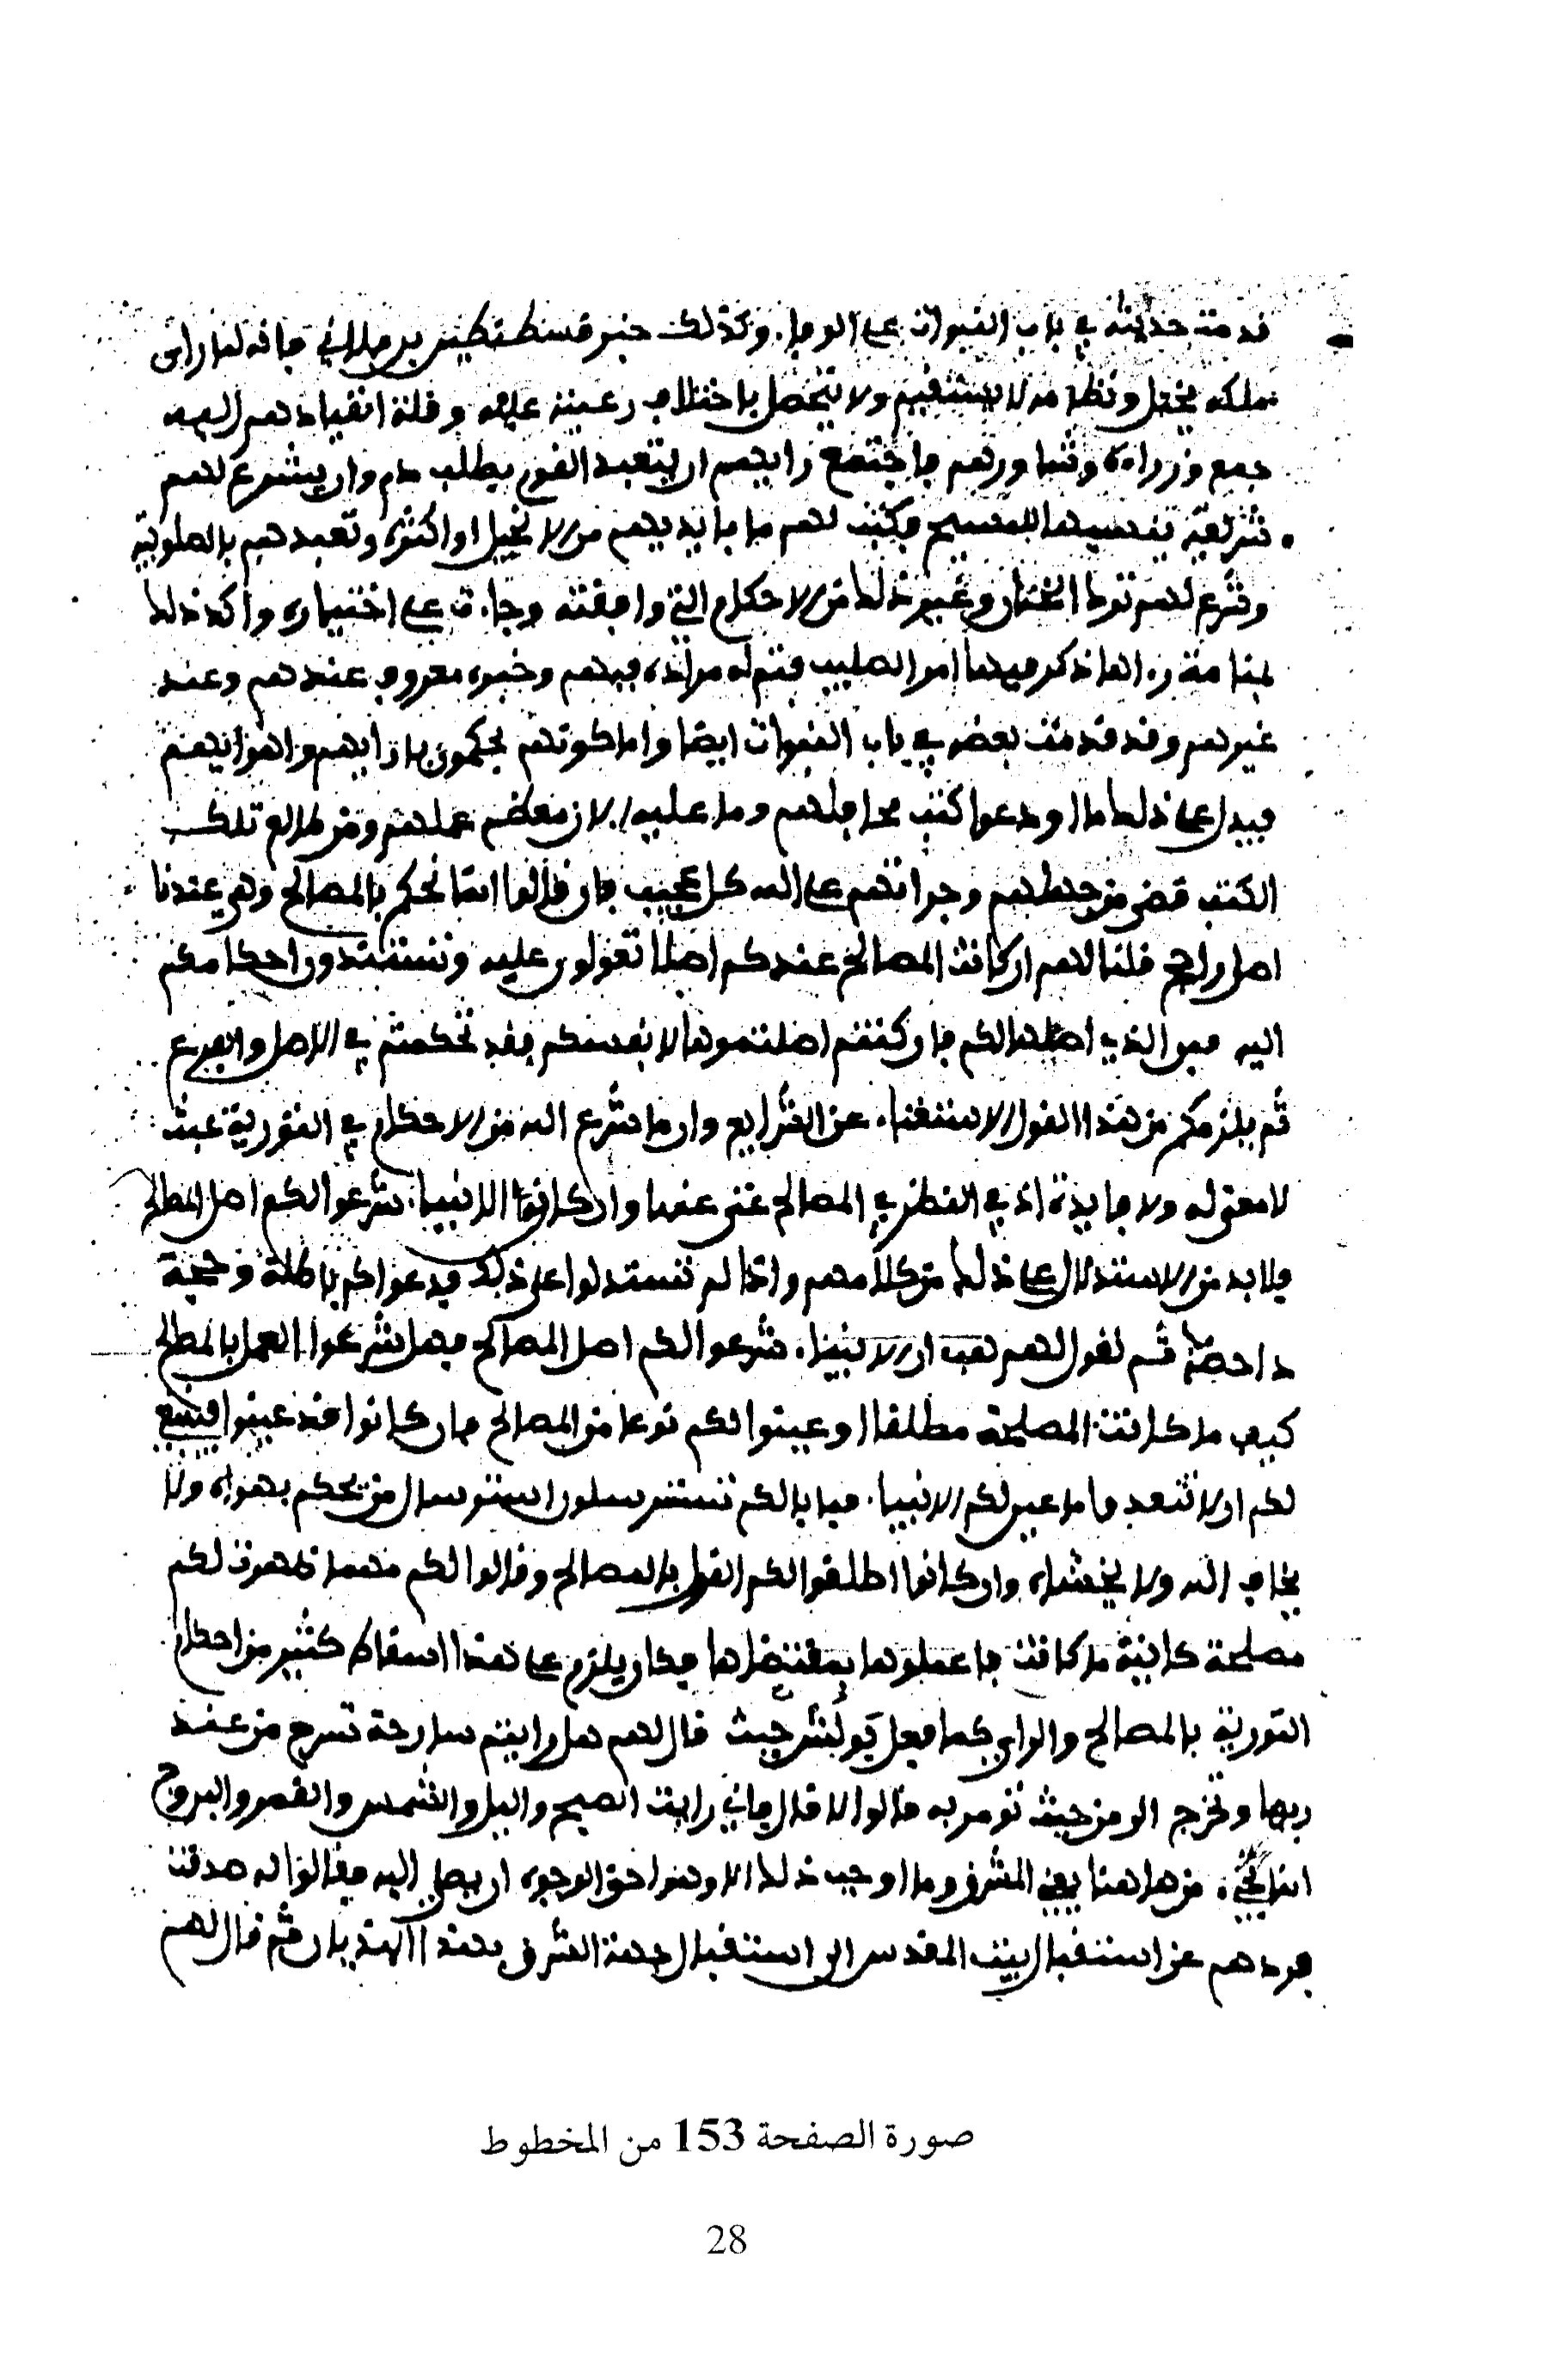 قدمت حديثه في باب النبوات على الوفا. وكذلك خبر قسطنطين بن هلاني فانه لما راى
ملكه يختل ونظامه لا يستقيم ولا يتحصل باختلاف رعيته عليه وقلة انقيادهم اليه
جمع وزراءه وشاورهم فاجتمع رايهم ان يتعبد القوم بطلب دم وان يشرع لهم
شريعة ينسبها للمسيح فكتب لهم ما بايديهم من الانجيل او اكثره وتعبدهم بالصلوبية
وشرع لهم ترك الختان وغير ذلك من الاحكام التي وافقته وجاءت على اختياره واكد ذلك
بمنامة راها ذكر فيها امر الصليب فتم له مراده فيهم وخبره معروف عندهم وعند
غيرهم وقد قدمت بعضه في باب النبوات ايضا واما كونهم يحكمون باراىهم واهوائهم
فيدل على ذلك ما اودعوا كتب محافلهم وما عليه الان معظم عملهم ومن طالع تلك
الكتب قضى من جهلهم وجراتهم على الله كل عجيب فان قالوا انما نحكم بالمصالح وهي عندنا
اصل راجح قلنا لهم ان كانت المصالح عندكم اصلا تعولون عليه وتستندون احكامكم
اليه فمن الذي اصلها لكم فان كنتم اصلتموها لانفسكم فقد تحكمتم في الاصل والفرع
ثم يلزمكم من هذا القول الاستغناء عن الشرايع وان ما شرع الله من الاحكام في التورية عبث
لا معنى له ولا فايدة اذ في النظر في المصالح غنى عنها وان كانوا الانبياء شرعوا لكم اصل المصالح
فلا بد من الاستدلال على ذلك من كلامهم واذا لم تستدلوا على ذلك فدعواكم باطلة وحجة
داحضة ثم نقول لهم هب ان الانبياء شرعوا لكم اصل المصالح فهل شرعوا العمل بالمصالح
كيف ما كانت المصلحة مطلقا او عينوا لكم نوعا من المصالح فان كانوا قد عينوا فينبغي
لكم ان لا تتعدوا ما عين لكم الانبياء. فما بالكم تسترسلون استرسال من يحكم بهواه ولا
يخاف الله ولا يخشاه وان كانوا اطلقوا لكم القول بالمصالح وقالوا لكم مهما ظهرت لكم
مصلحة كائنة ما كانت فاعملوها بمقتضاها فكان يلزم على هذا اسقاط كثير من احكام
التورية بالمصالح والراي كما فعل بولش حيث قال لهم هل رايتم سارحة تسرح من عند
ربها وتخرج الا من حيث تومر به قالوا لا قال فاني رايت الصبح واليل والشمس والقمر والبروج
انما تجيء من هاهنا يعني المشرق وما اوجب ذلك الا وهو احق الوجوه ان يصلى اليه فقالوا له صدقت
فردهم عن استقبال بيت المقدس الى استقبال جهة الشرق بهذا الهذيان ثم قال لهم
صورة الصفحة 153 من المخطوط
28